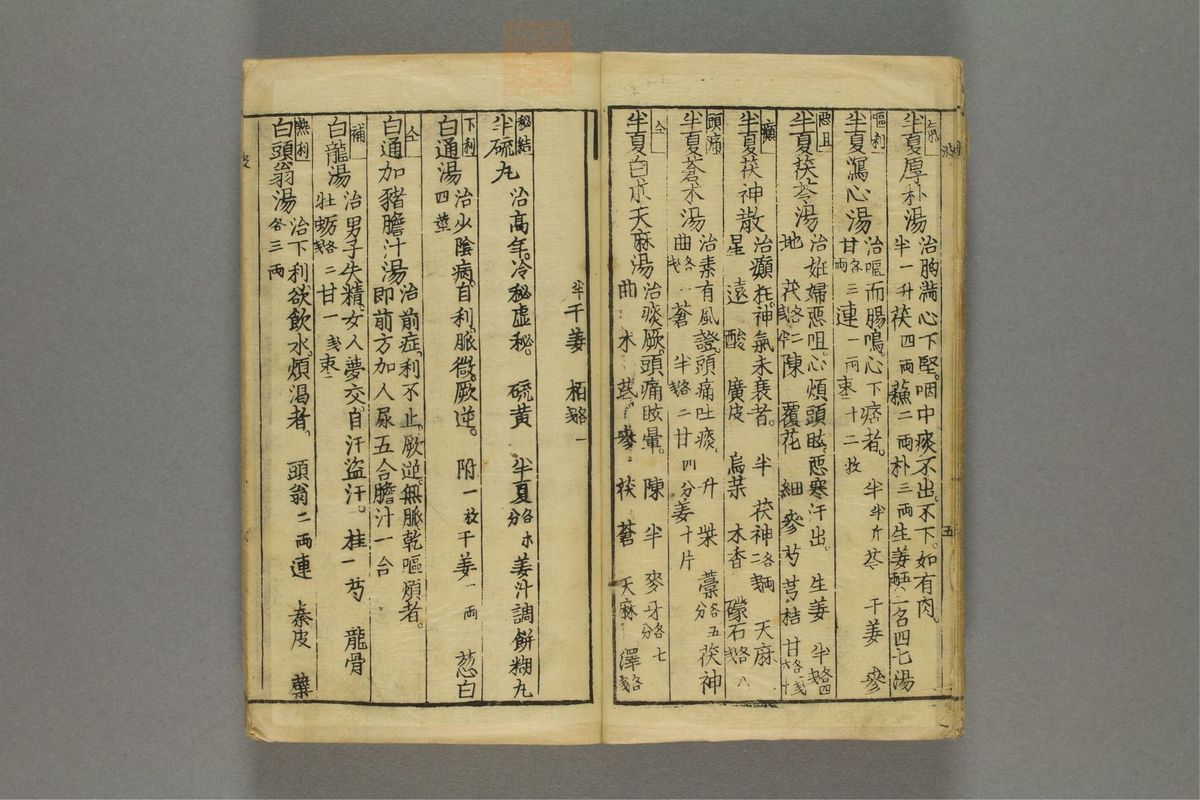 氣
半夏厚朴湯
治胸満心下堅。咽中痰不出。不下。如有肉。
半一升茯四両蘓二両朴三両生姜五両一名四七湯
嘔利
半夏瀉心湯
治嘔而腸鳴。心下痞者。半半斤芩 干姜 參
甘各三両連一両棗十二枚
悪且
半夏茯苓湯
治妊婦悪咀。心煩頭眩。悪寒汗出。 生姜 半各四
地 茯 陳 覆花 細 參 芎 芍 桔 甘
癲
半夏茯神散
治癲狂。神氣未衰者。 半 茯神各二 天麻
星 遠 酸 廣皮 烏 木香 礞石各八
頭痛
半夏蒼朮湯
治素有風證。頭痛吐痰。升 柴 藁各五分茯神
曲各一 蒼 半各二甘四分姜十片
仝
半夏白朮天麻湯
治痰厥。頭痛眩暈。陳 半 麥牙各七分
曲 朮 芪 參 茯 蒼 天麻 澤各
半干姜 栢各一
秘結
半硫丸
治高年。冷秘虚秘。 硫黄 半夏各分 水姜汁調餅糊丸
下利
白通湯
治少陰病。自利。脈微。厥逆。 附一枚干姜一両 葱白
四莖
仝
白通加豬膽汁湯
治前症。利不止。厥逆。無脈乾嘔煩者。
即前方加人尿五合膽汁一合
補
白龍湯
治男子失精。女人夢交自汗盗汗。 桂一芍 龍骨
牡蛎各二甘一戔棗二
熱利
白頭翁湯
治下利。欲飲水。煩渇者。 頭翁二両連 秦皮 蘗
各三両
五